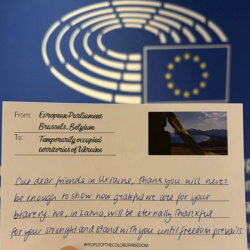 From: European Parliament
Brussels, Belgium
To: Temporarily occupied
territories of Ukraine
Our dear friends in Ukraine, thank you will never
be enough to show how grateful we are for your
bravery. We, in Latvia, will be eternally thankful
for your strenght and stand with you until freedom prevails.
#PEOPLEOFTHECOLOROFFREEDOM